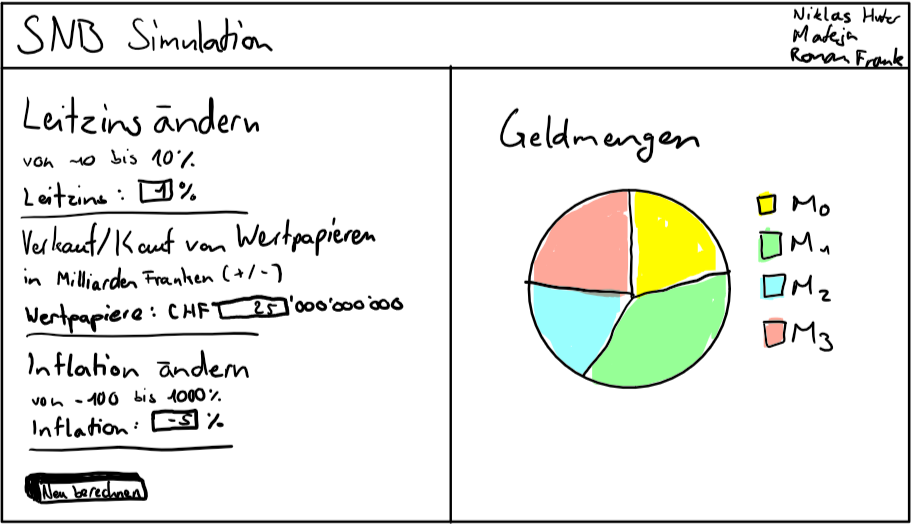 SNB Simulation
Niklas Huter
Mateja
Roman Frank
Leitzins ändern
von -10 bis 10%
Leitzins: 1 %
Verkauf/Kauf von Wertpapieren
in Milliarden Franken (+/-)
Wertpapiere: CHF 25'000'000'000
Inflation ändern
von -100 bis 1000%
Inflation: -5 %
Neu berechnen
Geldmengen
M0
M1
M2
M3